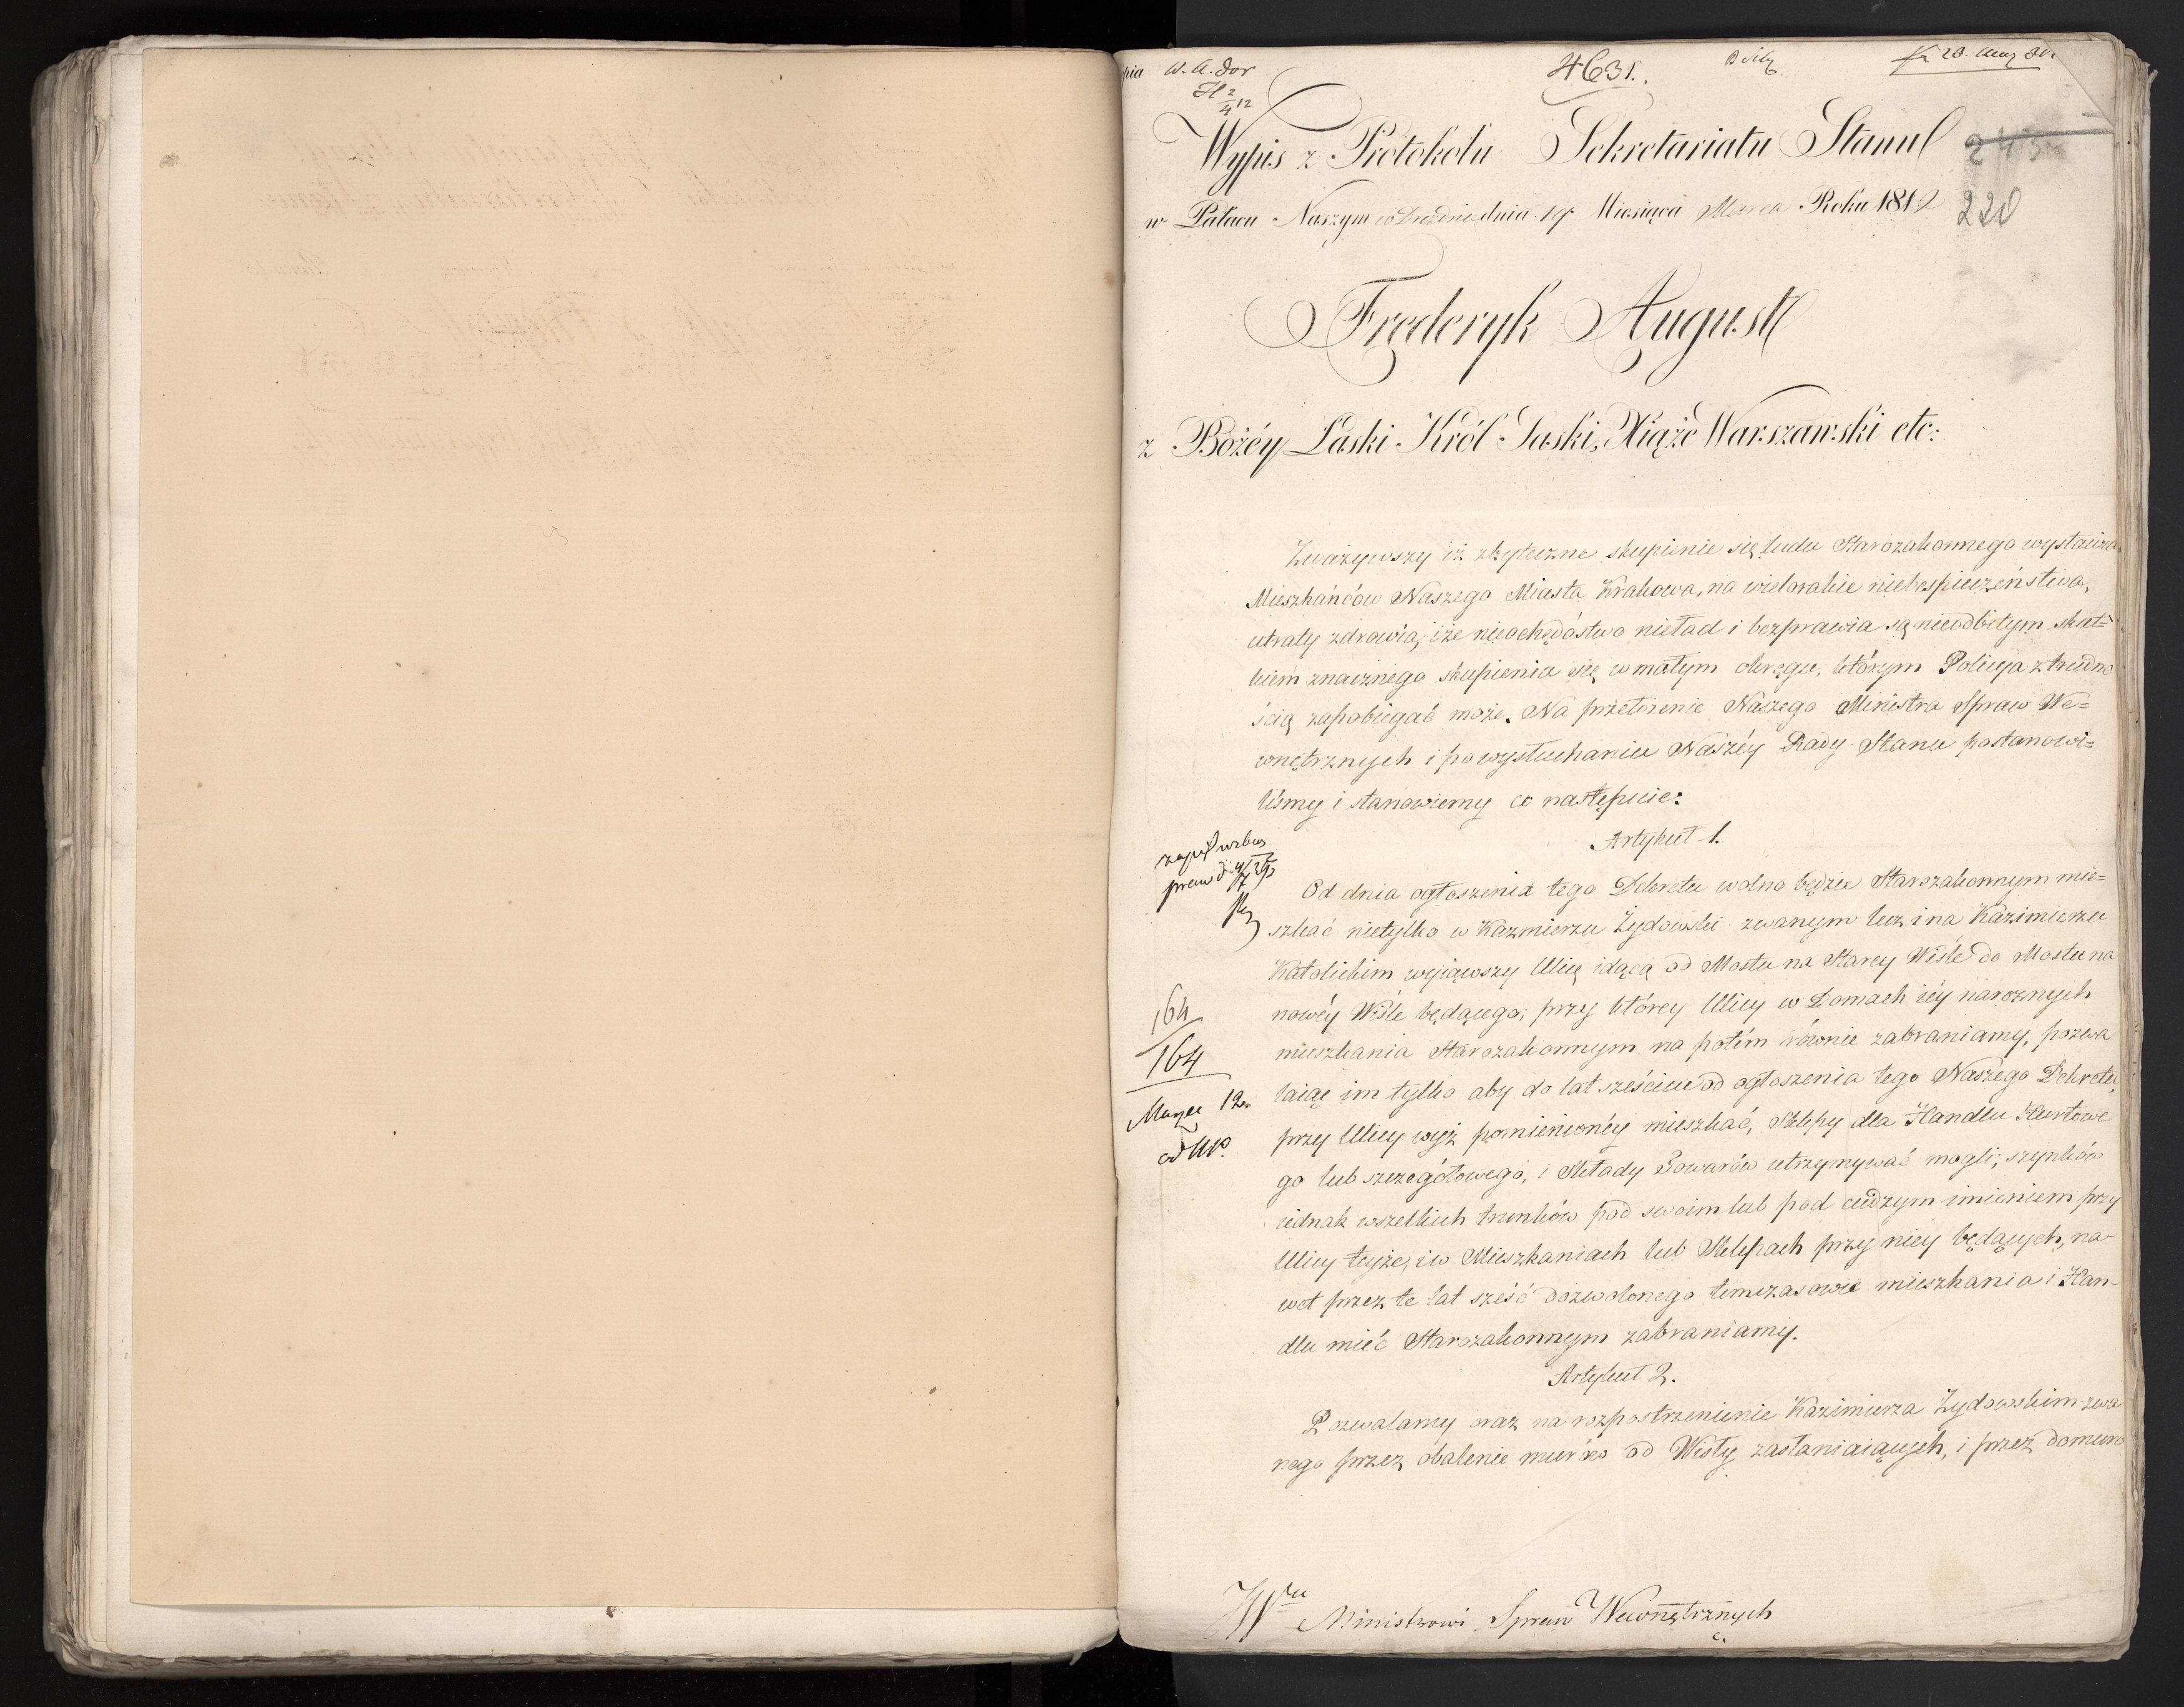 W. A. Dor
4631.
220
Wypis z Protokołu Sekretariatu Stanu
w Pałacu Naszym w Dreźnie dnia 19 Miesiąca Marca Roku 1812
Frederyk August
z Bożéy Łaski Król Saski, Xiążę Warszawski etc:
Zważywszy iż zbyteczne skupienie się ludu Starozakonnego wystawia
Mieszkańców Naszego Miasta Krakowa, na wielorakie niebespieczeństwa,
utraty zdrowia, iże nieochędóstwo nieład i bezprawia są nieodbitym skut=
kiem znacznego skupienia się w małym okręgu, którym Policyia z trudno
ścią zapobiegać może. Na przełożenie Naszego Ministra Spraw We=
wnętrznych i po wysłuchaniu Naszéy Rady Stanu postanowi=
liśmy i stanowiemy co następuie:
Artykuł 1.
Od dnia ogłoszenia tego Dekretu wolno będzie Starozakonnym mie=
szkać nietylko w Kazmierzu Żydowski zwanym lecz i na Kazimierzu
Katolickim wyiąwszy Ulicę idącą od Mostu na Starey Wiśle do Mostu na
nowéy Wiśle będącego; przy którey Ulicy w Domach iéy narożnych
mieszkania Starozakonnym na potém równie zabraniamy, pozwa
laiąc im tylko aby do lat sześciu od ogłoszenia tego Naszego Dekretu,
przy Ulicy wyż pomienionéy mieszkać, Sklepy dla Handlu Hurtowe
go lub szczegółowego, i Składy Towarów utrzymywać mogli; szynków
iednak wszelkich trunków pod swoim lub pod cudzym imieniem przy
Ulicy teyże, i w Mieszkaniach lub Sklepach przy niey będących, na-
wet przez te lat sześć dozwolonego tymczasowie mieszkania i Han-
dlu mieć Starozakonnym zabraniamy.
Artykuł 2.
Pozwalamy oraz na rozpostrzenienie Kazimierza Żydowskim zwa
nego przez obalenie murów od Wisły zasłaniaiących, i przez domuro
164
164
Marzec 12.
Ministrowi Spraw Wewnętrznych